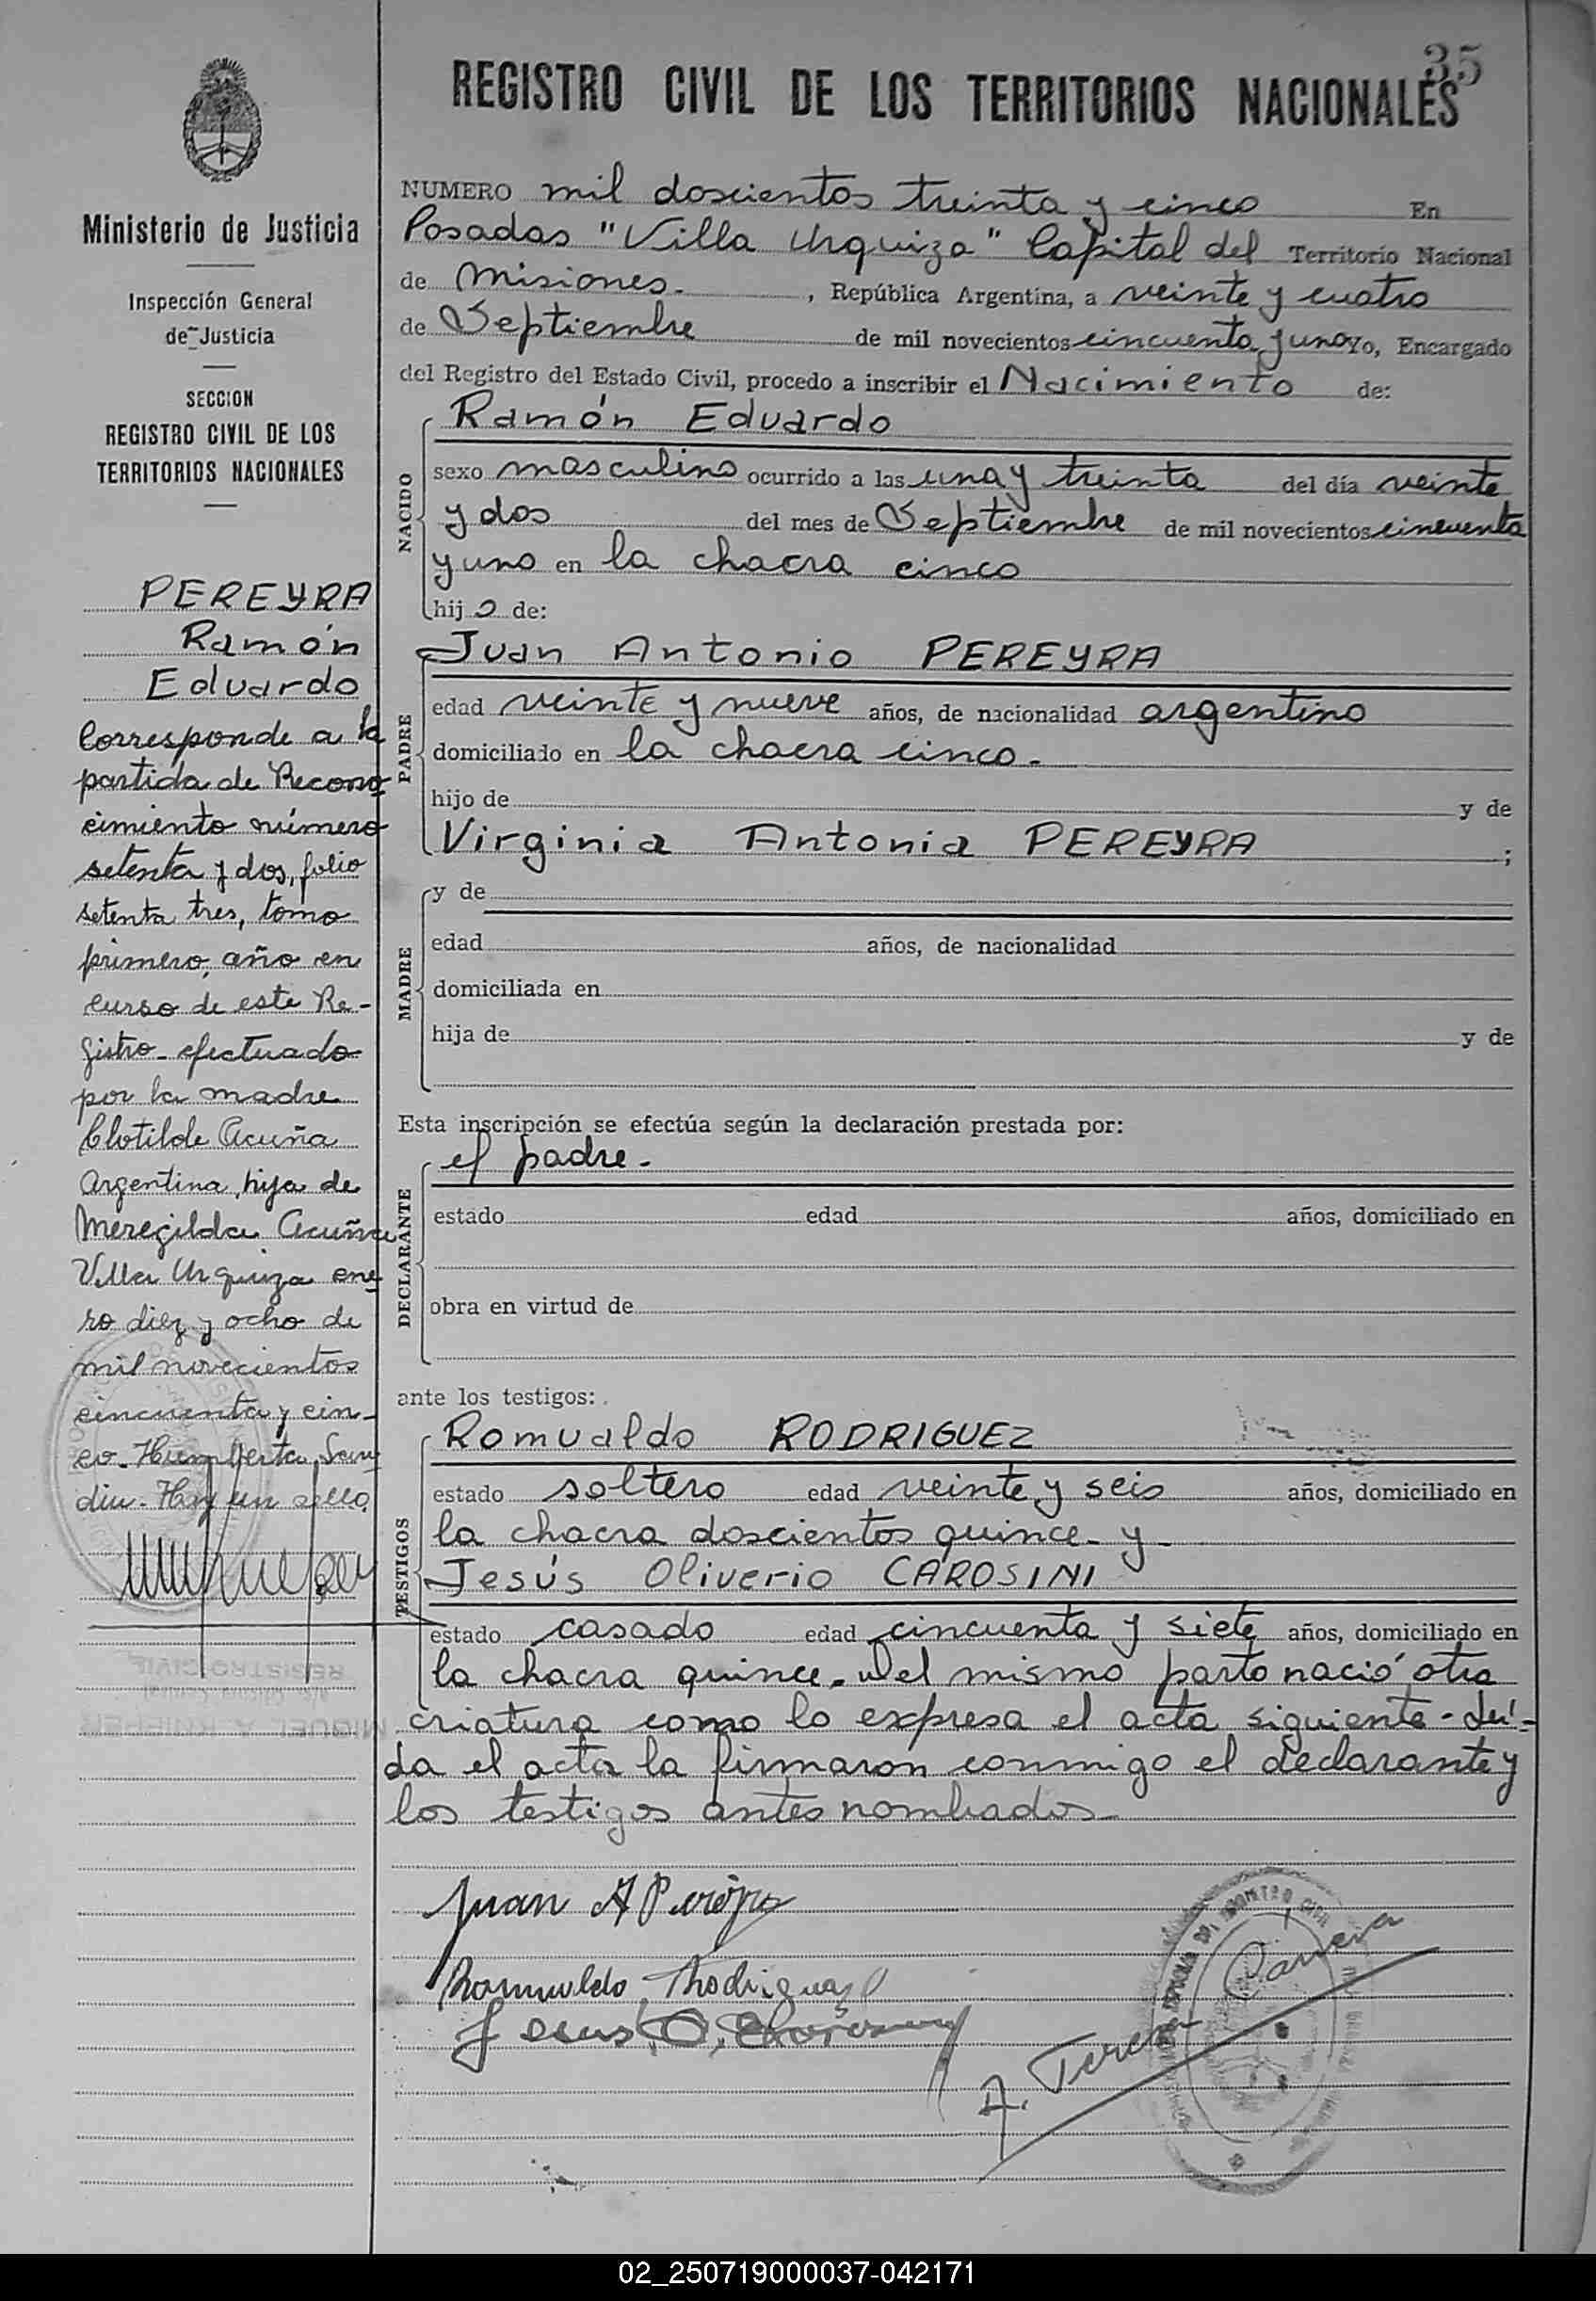 35
REGISTRO CIVIL DE LOS TERRITORIOS NACIONALES
Ministerio de Justicia
Inspección General
de Justicia
SECCION
REGISTRO CIVIL DE LOS
TERRITORIOS NACIONALES
PEREYRA
Ramón
Eduardo
Corresponde a la
partida de Recono
cimiento número
setenta y dos, folio
setenta tres, tomo
primero, año en
curso de este Re-
gistro efectuado
por la madre
Clotilde Acuña
Argentina, hija de
Meregilda Acuña
Villa Urquiza ene
ro diez y ocho de
mil novecientos
cincuenta y cin-
co. Humberto
Hay un sello
REGISTRO CIVIL
NUMERO mil doscientos treinta y cinco En
Posadas "Villa Urquiza" Capital del Territorio Nacional
de Misiones. , República Argentina, a veinte y cuatro
de Septiembre de mil novecientos cincuenta y uno yo, Encargado
del Registro del Estado Civil, procedo a inscribir el Nacimiento de:
NACIDO
Ramón Eduardo
sexo masculino ocurrido a las una y treinta del día veinte
y dos del mes de Septiembre de mil novecientos cincuenta
y uno en la chacra cinco
hij o de:
PADRE
Juan Antonio PEREYRA
edad veinte y nueve años, de nacionalidad argentino
domiciliado en la chacra cinco.
hijo de y de
Virginia Antonia PEREYRA ;
MADRE
y de
edad años, de nacionalidad
domiciliada en
hija de y de
Esta inscripción se efectúa según la declaración prestada por:
DECLARANTE
el padre.
estado edad años, domiciliado en
obra en virtud de
ante los testigos:
TESTIGOS
Romualdo RODRIGUEZ
estado soltero edad veinte y seis años, domiciliado en
la chacra doscientos quince y
Jesús Oliverio CAROSINI
estado casado edad cincuenta y siete años, domiciliado en
la chacra quince. Del mismo parto nació otra
criatura como lo expresa el acta siguiente. Leí-
da el acta la firmaron conmigo el declarante y
los testigos antes nombrados
Juan A Pereyra
Romualdo Rodriguez
Jesus O. Carosini
A. Teresa Carrera
02_250719000037-042171